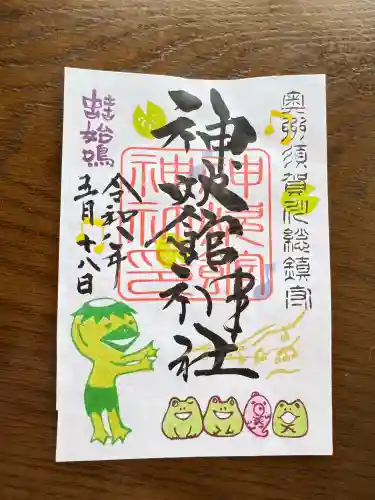 奥州須賀川総鎮守
神炊館神社
神炊館
神社印
令和八年
五月十八日
蛙始鳴